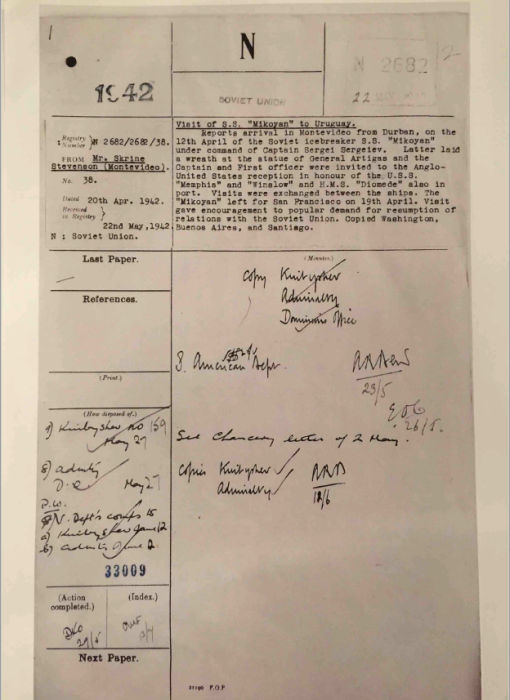 1
N
1942
SOVIET UNION
N 2682
2
22
Registry Number } N 2682/2682/38.
FROM Mr. Skrine Stevenson (Montevideo).
No. 38.
Dated 20th Apr. 1942.
Received in Registry } 22nd May, 1942.
N : Soviet Union.
Visit of S.S. "Mikoyan" to Uruguay.
Reports arrival in Montevideo from Durban, on the
12th April of the Soviet icebreaker S.S. "Mikoyan"
under command of Captain Sergei Sergeiev. Latter laid
a wreath at the statue of General Artigas and the
Captain and First officer were invited to the Anglo-
United States reception in honour of the U.S.S.
"Memphis" and "Winslow" and H.M.S. "Diomede" also in
port. Visits were exchanged between the ships. The
"Mikoyan" left for San Francisco on 19th April. Visit
gave encouragement to popular demand for resumption of
relations with the Soviet Union. Copied Washington,
Buenos Aires, and Santiago.
Last Paper.
References.
(Print.)
(How disposed of.)
Kuibyshev No 159
May 27
admlty
D.O.
May 27
N. Dept's comps 15
a) Kuibyshev June 12
b) admlty June 2.
33009
(Action completed.)
(Index.)
29/5
Next Paper.
(Minutes.)
Copy Kuibyshev
Admiralty
Dominions Office
S. American Dept.
23/5
26/5.
See Chancery letter of 2 May.
Copies Kuibyshev
Admiralty
18/6
F.O.P